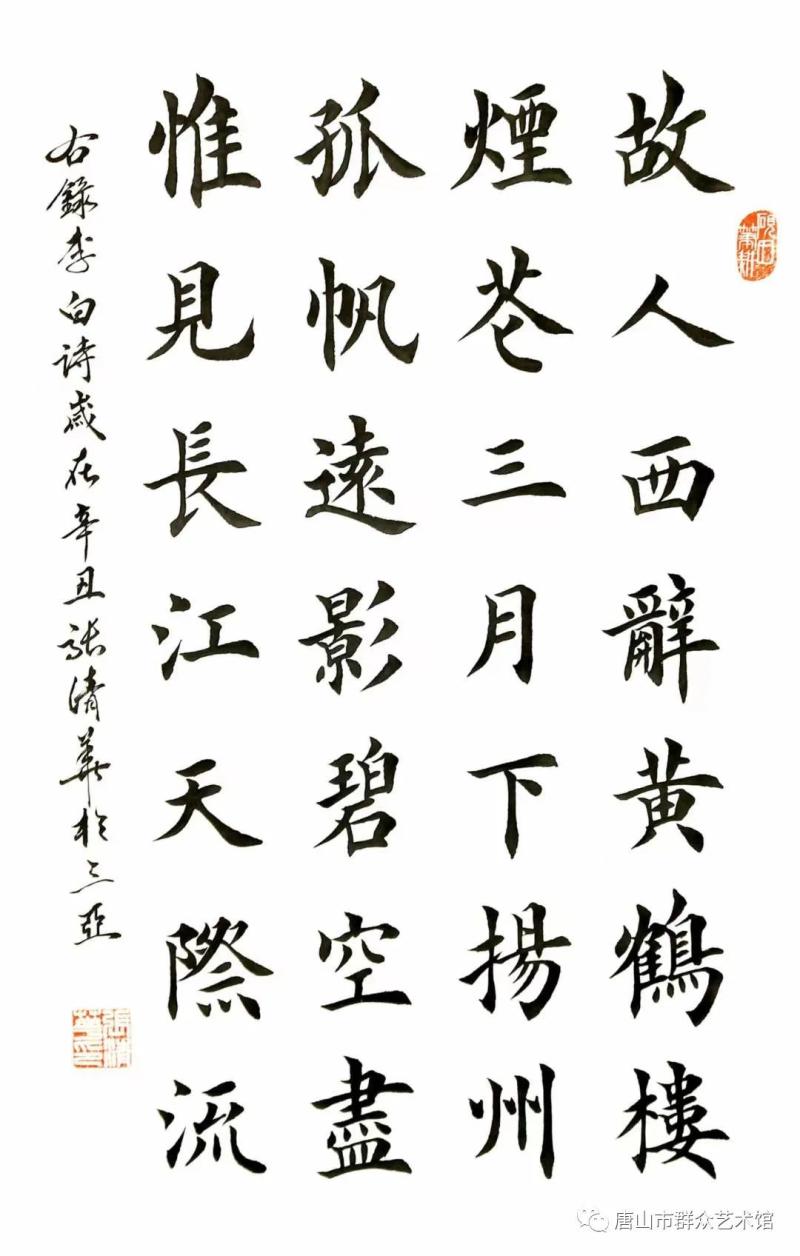 故人西辭黄鶴樓
煙苍三月下揚州
孤帆遠影碧空盡
惟見長江天際流
右錄李白詩歲在辛丑張清華於三亞
硯田筆耕
唐山市群众艺术馆